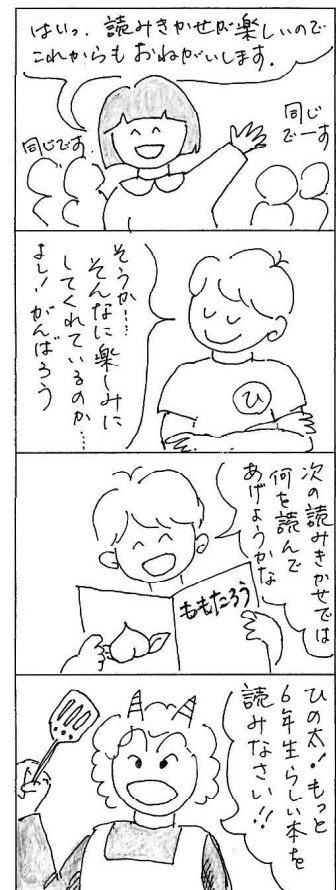 はいっ. 読みきかせが楽しいので
これからもおねがいします.
同じです.
同じ
でーす
そうか…
そんなに楽しみに
してくれているのか…
よし!がんばろう
ひ
次の読みきかせでは
何を読んで
あげようかな
ももたろう
ひの太!もっと
6年生らしい本を
読みなさい!!